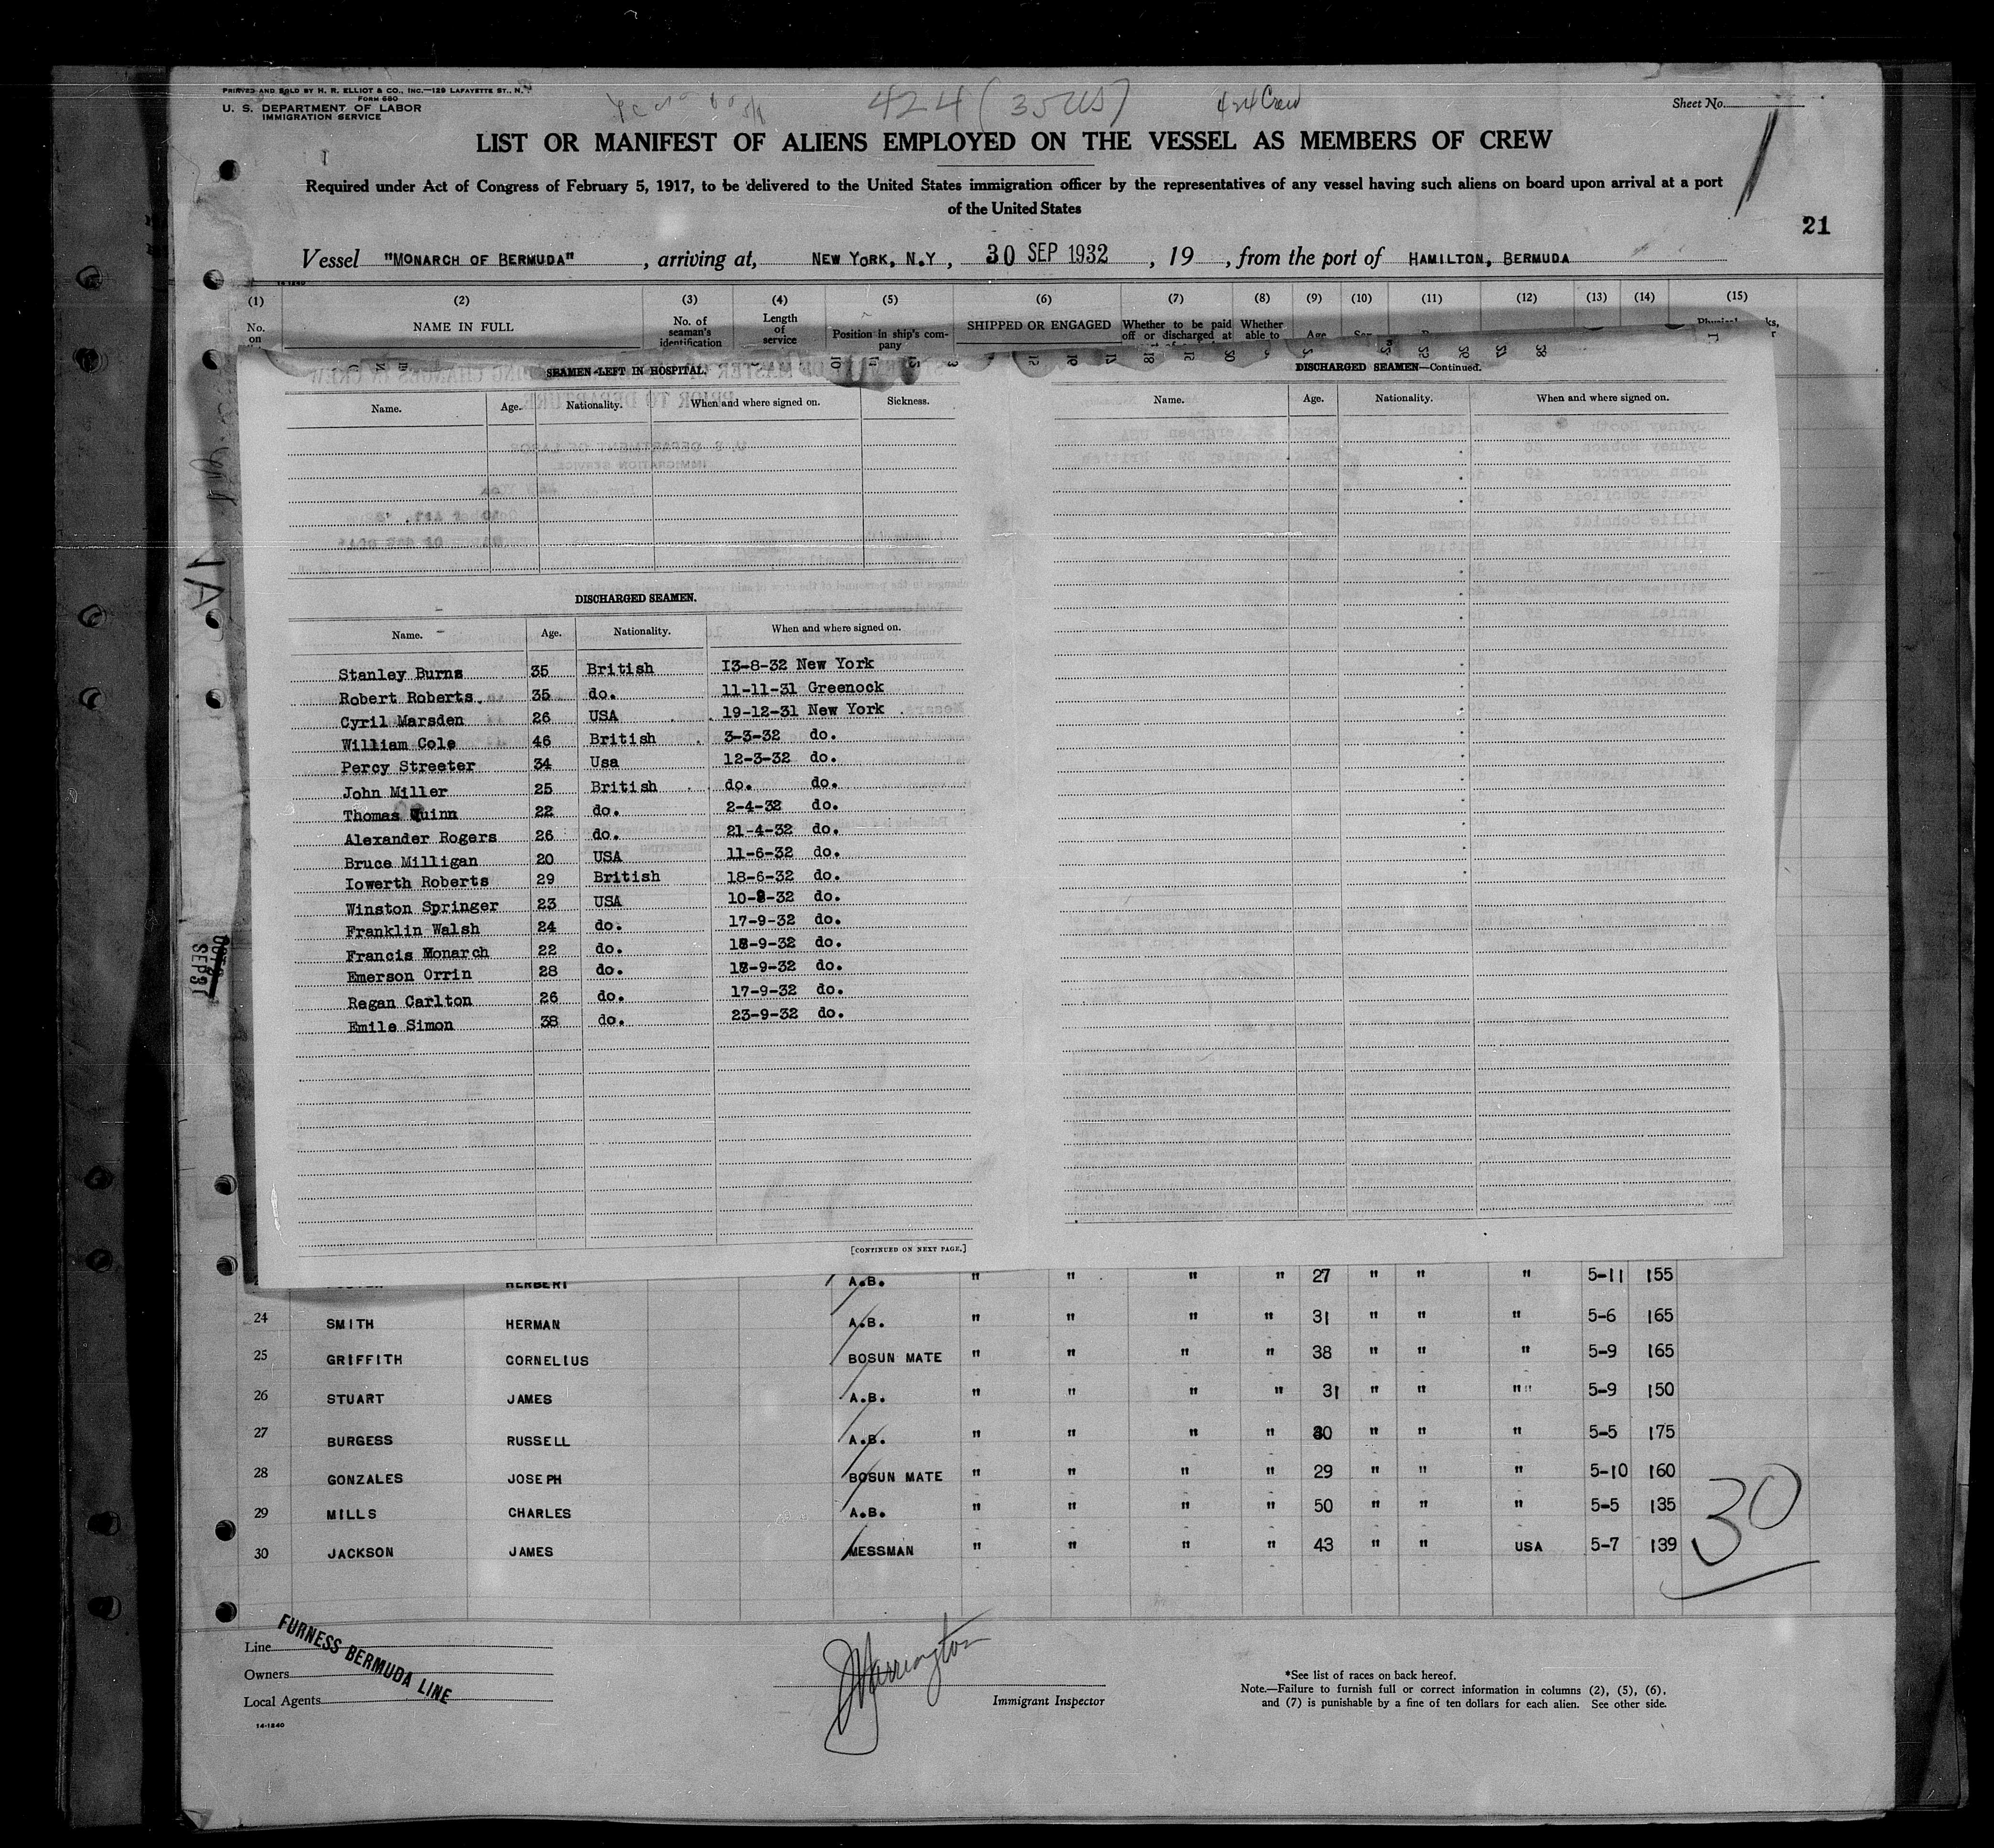 PRINTED AND SOLD BY H. R. ELLIOT & CO., INC.—129 LAFAYETTE ST., N.Y
FORM 680
U. S. DEPARTMENT OF LABOR
IMMIGRATION SERVICE
424 (35US) 424 Crew
Sheet No.
LIST OR MANIFEST OF ALIENS EMPLOYED ON THE VESSEL AS MEMBERS OF CREW
Required under Act of Congress of February 5, 1917, to be delivered to the United States immigration officer by the representatives of any vessel having such aliens on board upon arrival at a port
of the United States
21
Vessel "MONARCH OF BERMUDA", arriving at, NEW YORK, N.Y, 30 SEP 1932, 19 , from the port of HAMILTON, BERMUDA
14-1240
(1) (2) (3) (4) (5) (6) (7) (8) (9) (10) (11) (12) (13) (14) (15)
No. on NAME IN FULL No. of seaman's identification Length of service Position in ship's company SHIPPED OR ENGAGED Whether to be paid off or discharged at Whether able to Age
SEAMEN LEFT IN HOSPITAL.
Name. Age. Nationality. When and where signed on. Sickness.
DISCHARGED SEAMEN.
Name. Age. Nationality. When and where signed on.
Stanley Burns 35 British 13-8-32 New York
Robert Roberts 35 do. 11-11-31 Greenock
Cyril Marsden 26 USA 19-12-31 New York
William Cole 46 British 3-3-32 do.
Percy Streeter 34 Usa 12-3-32 do.
John Miller 25 British do. do.
Thomas Quinn 22 do. 2-4-32 do.
Alexander Rogers 26 do. 21-4-32 do.
Bruce Milligan 20 USA 11-6-32 do.
Iowerth Roberts 29 British 18-6-32 do.
Winston Springer 23 USA 10-9-32 do.
Franklin Walsh 24 do. 17-9-32 do.
Francis Monarch 22 do. 18-9-32 do.
Emerson Orrin 28 do. 18-9-32 do.
Regan Carlton 26 do. 17-9-32 do.
Emile Simon 38 do. 23-9-32 do.
[CONTINUED ON NEXT PAGE.]
DISCHARGED SEAMEN—Continued.
Name. Age. Nationality. When and where signed on.
HERBERT A.B. " " " " 27 " " " 5-11 155
24 SMITH HERMAN A.B. " " " " 31 " " " 5-6 165
25 GRIFFITH CORNELIUS BOSUN MATE " " " " 38 " " " 5-9 165
26 STUART JAMES A.B. " " " " 31 " " "" 5-9 150
27 BURGESS RUSSELL A.B. " " " " 30 " " " 5-5 175
28 GONZALES JOSEPH BOSUN MATE " " " " 29 " " " 5-10 160
29 MILLS CHARLES A.B. " " " " 50 " " " 5-5 135
30 JACKSON JAMES MESSMAN " " " " 43 " " USA 5-7 139
30
Line
Owners
Local Agents
FURNESS BERMUDA LINE
14-1240
Immigrant Inspector
*See list of races on back hereof.
Note.—Failure to furnish full or correct information in columns (2), (5), (6),
and (7) is punishable by a fine of ten dollars for each alien. See other side.